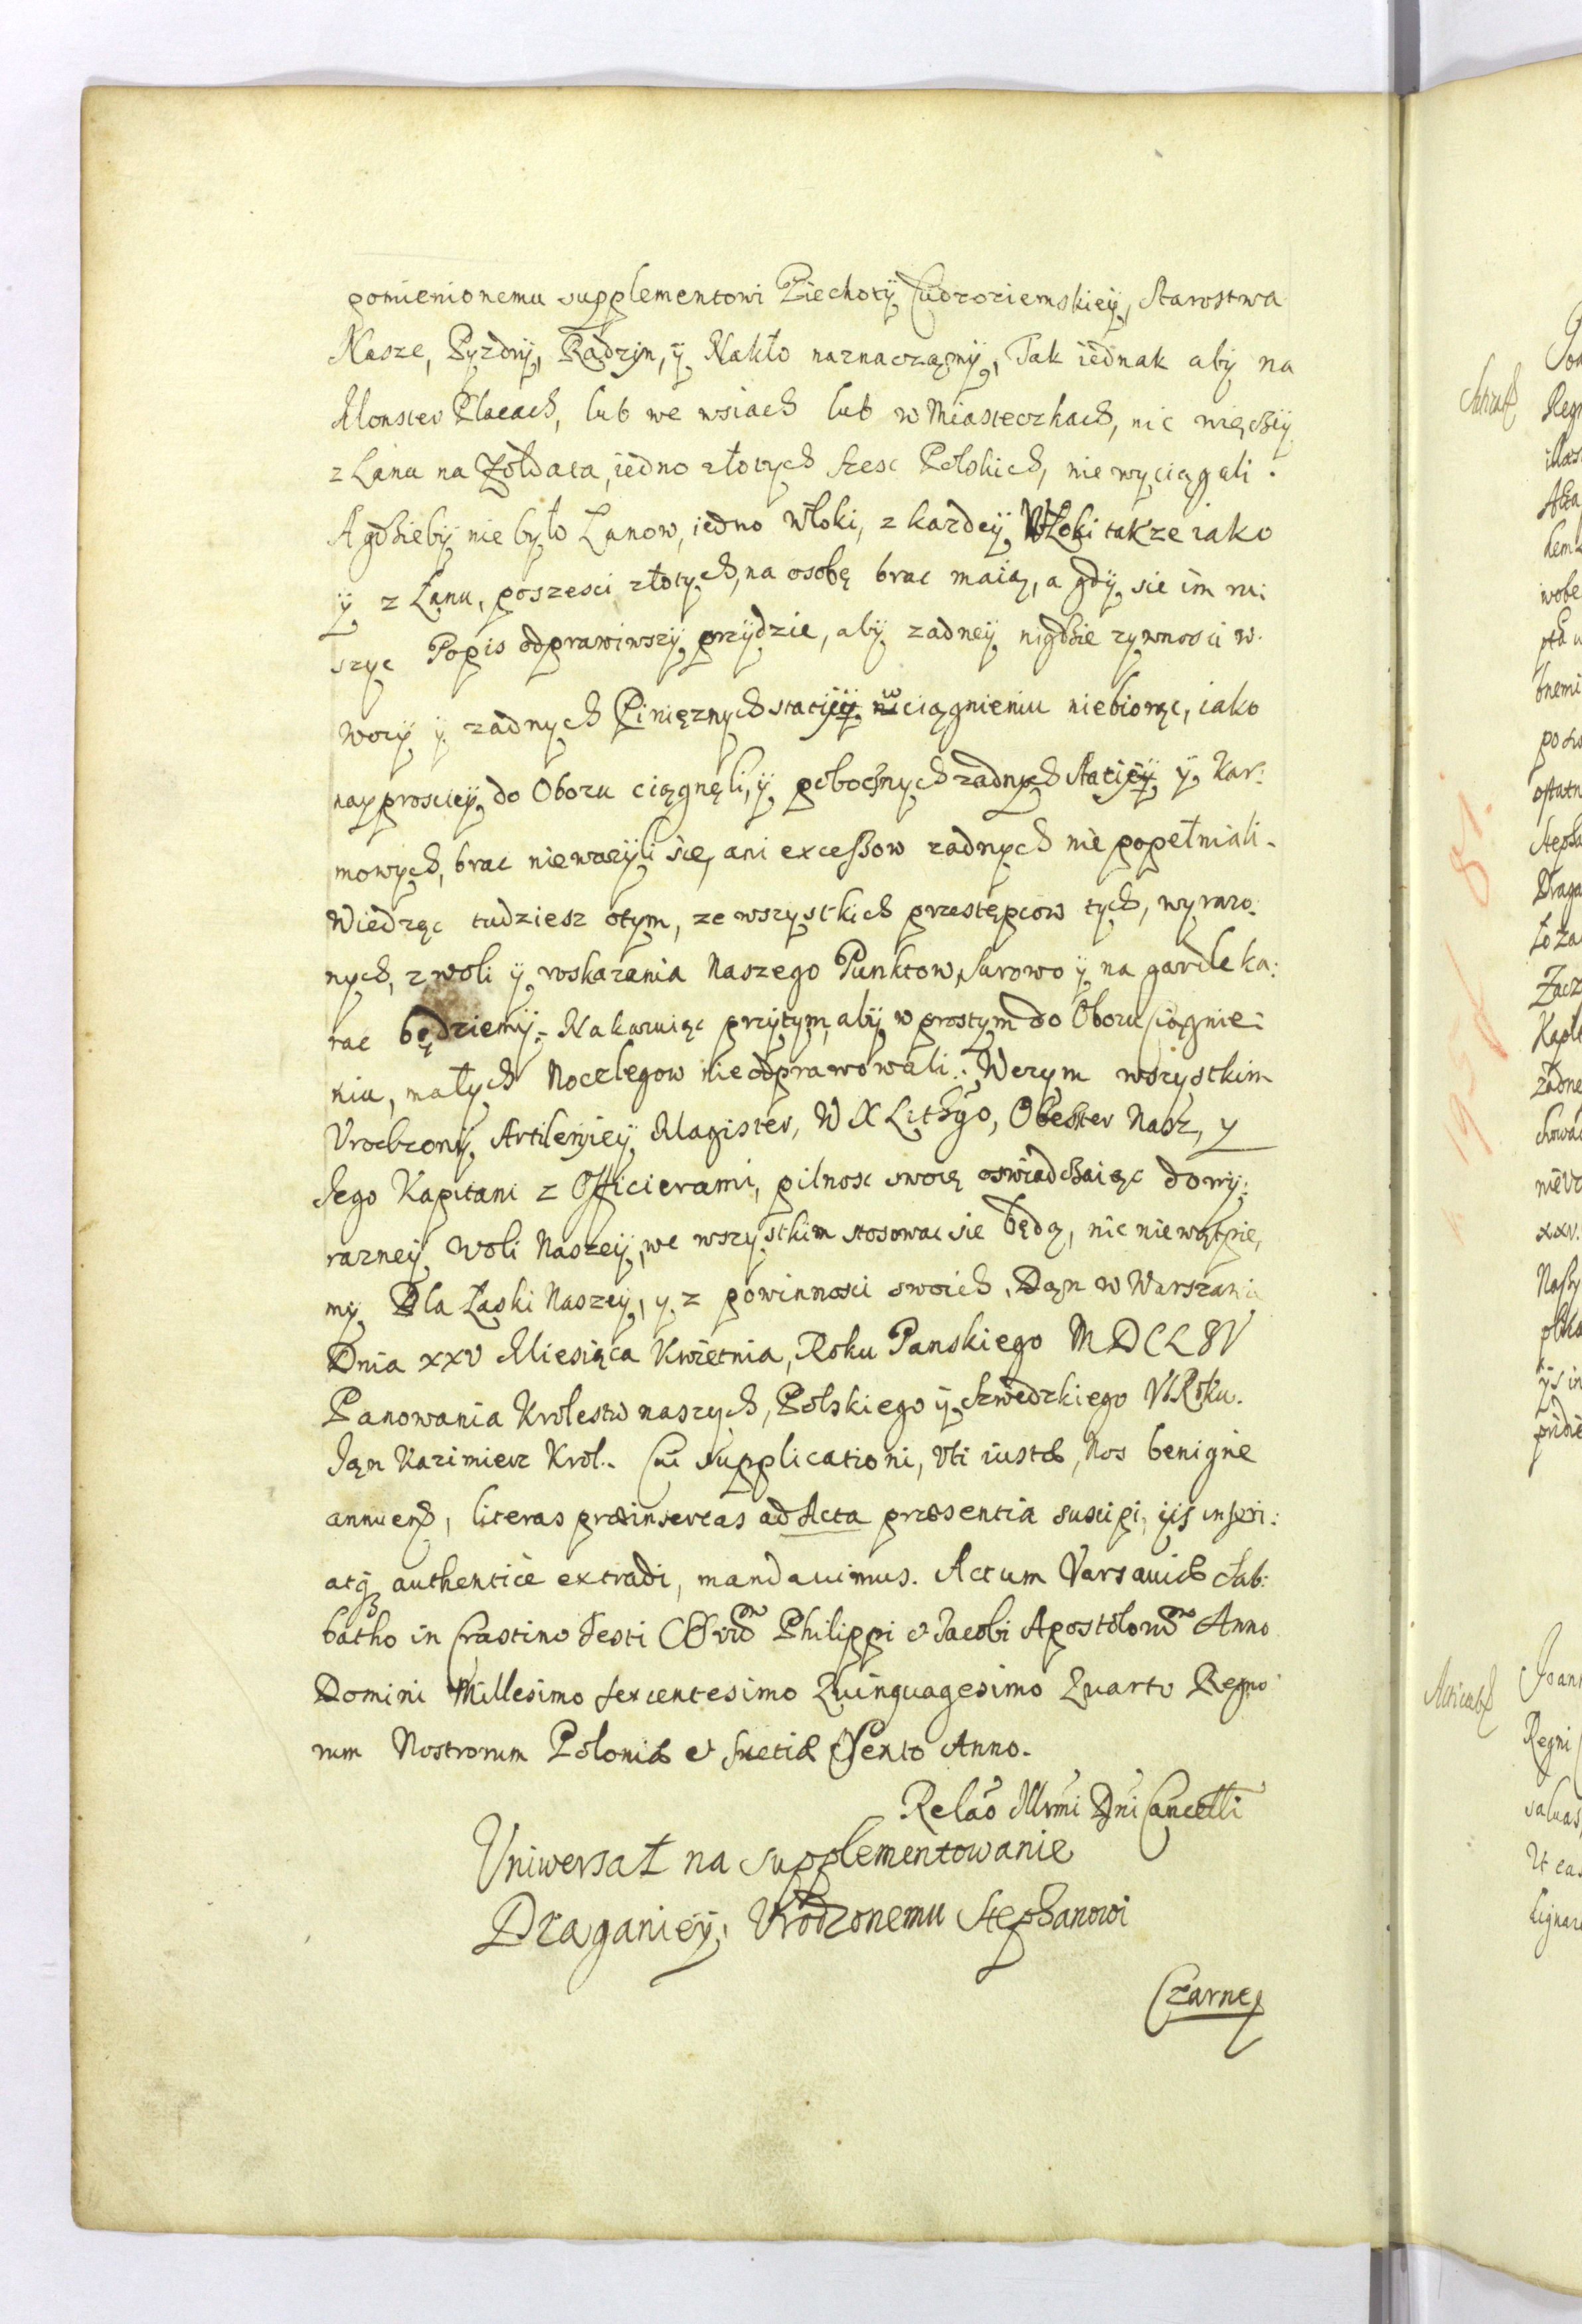 pomienionemu supplementowi Piechoty Cudzoziemskiey, Starostwa
Nasze, Pyzdry, Radzyn, y Nakło naznaczamy, Tak iednak aby na
Monster Placach, lub we wsiach lub w Miasteczkach, nic więcey
z Lanu na Zołdata, iedno złotych szesc Polskich, nie wyciągali.
A gdzieby nie było Lanow, iedno Włoki, z kazdey Włoki takze iako
y z Łanu, poszesci złotych, na osobę brac maią, a gdy sie im ru:
szyc Popis odprawiwszy przydzie, aby zadney nigdzie zywnosci w.
wozy y zadnych Pinięznych stacyy w ciągnieniu niebiorąc, iako
nayprosciey do Obozu ciągnęli, y pobocznych zadnych Stacyy y Kar:
mowych, brac niewazyli się, ani excessow zadnych nie popełniali.
Wiedząc tudziesz otym, ze wszystkich przestępcow tych, wyrazo:
nych, z woli y roskazania Naszego Punktow, Surowo y na gardle ka:
rac będziemy. Nakazuiąc przytym, aby w prostym do Obozu ciągnie:
niu, małych Noclegow nieodprawowali. Wczym wszystkim
Vrodzony Artileryiey Magister, W X Lithgo, Obester Nasz, y
Jego Kapitani z Officierami, pilnosc swoię oswiadczaiąc dowy:
razney Woli Naszey, we wszystkim stosowac sie będą, nic niewątpie,
my Dla Łaski Naszey, y z powinnosci swoich. Dan w Warszawie
Dnia XXV Miesiąca Kwietnia, Roku Panskiego MDCLIV
Panowania Krolestw naszych, Polskiego y Szwedzkiego VI Roku.
Jan Kazimierz Krol. Cui supplicationi, vti iustæ, Nos benigne
annuen, literas præinsertas ad Acta præsentia suscipi, ijs inseri:
atq authenticè extradi, mandauimus. Actum Varsauiæ Sab:
batho in Crastino Festi Philippi et Jacobi Apostolorum Anno
Domini Millesimo Sexcentesimo Quinquagesimo Quarto Regno
rum Nostrorum Poloniæ et Suetiæ Sexto Anno.
Relāo Illrmi Dni Cancelli
Vniwersał na supplementowanie
Draganiey, Vrodzonemu Stephanowi
Czarne